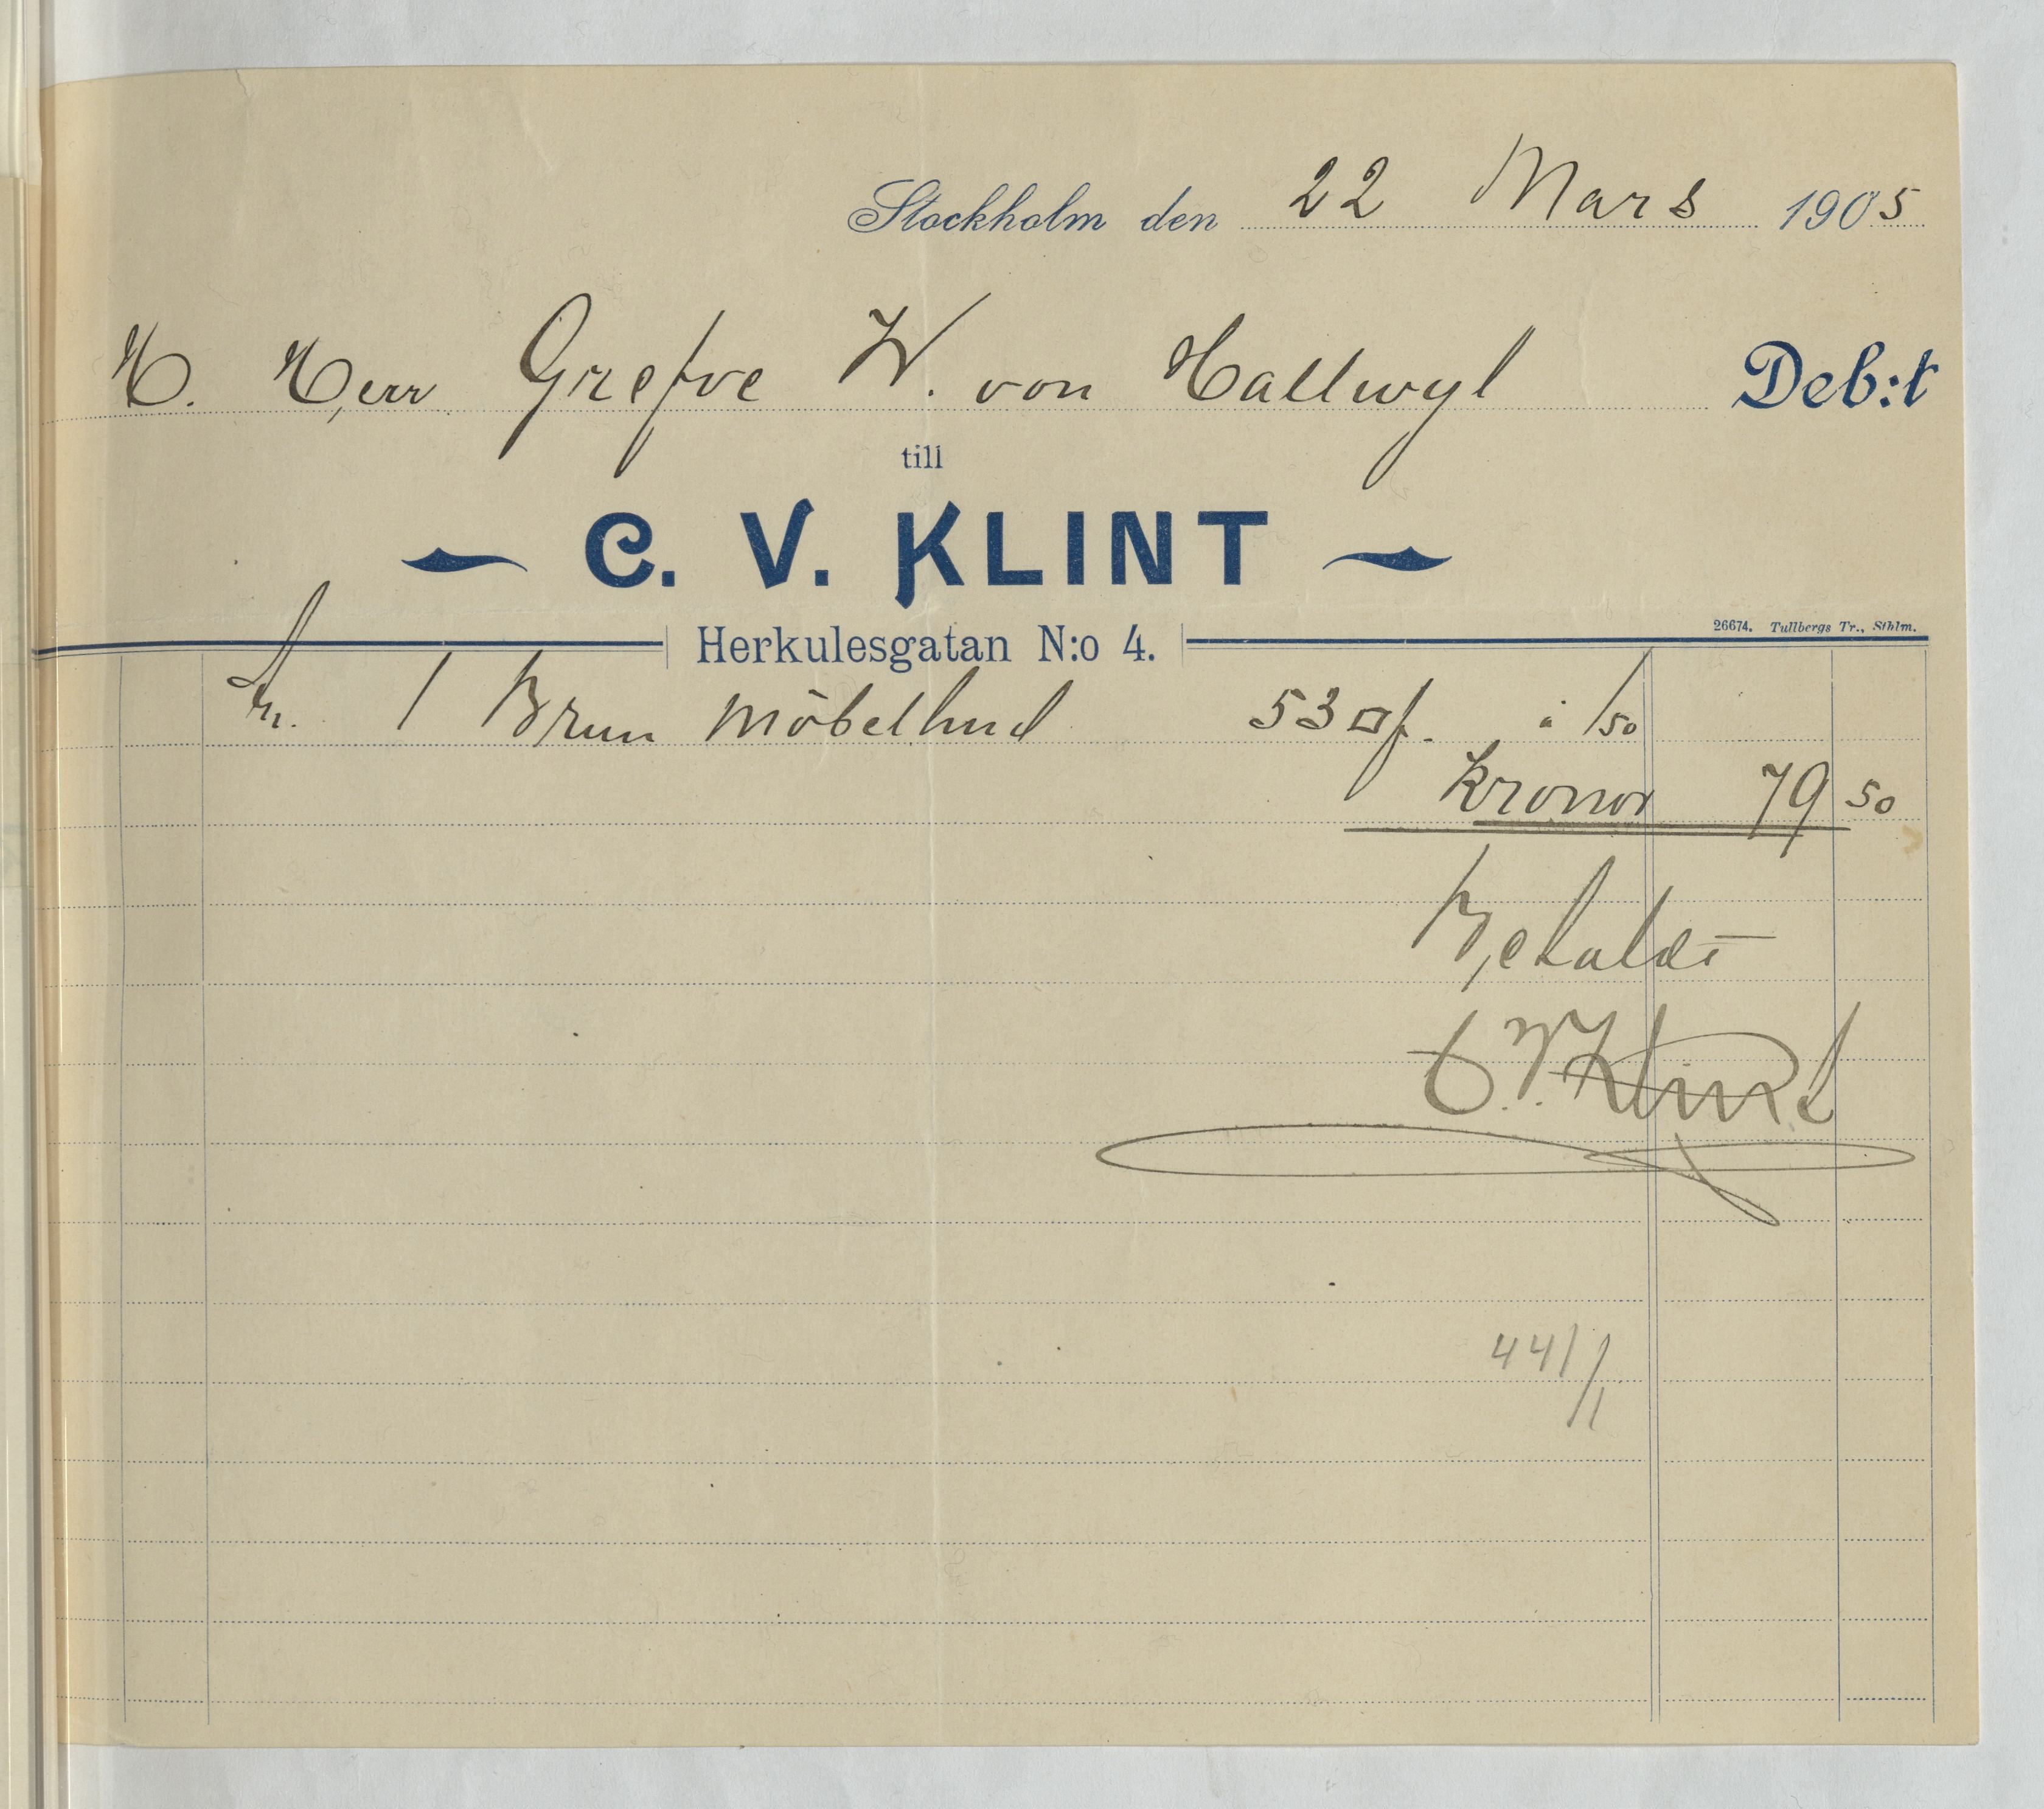 Stockholm den 22 Mars 1905
H. Herr Grefve W. von Hallwyl Deb:t
till
C. V. KLINT
Herkulesgatan N:o 4.
26674. Tullbergs Tr., Sthlm.
1 Brun Möbelhud 53 □f. à 1/50
Kronor 79 50
Betaldt
C. V. Klint
44/1